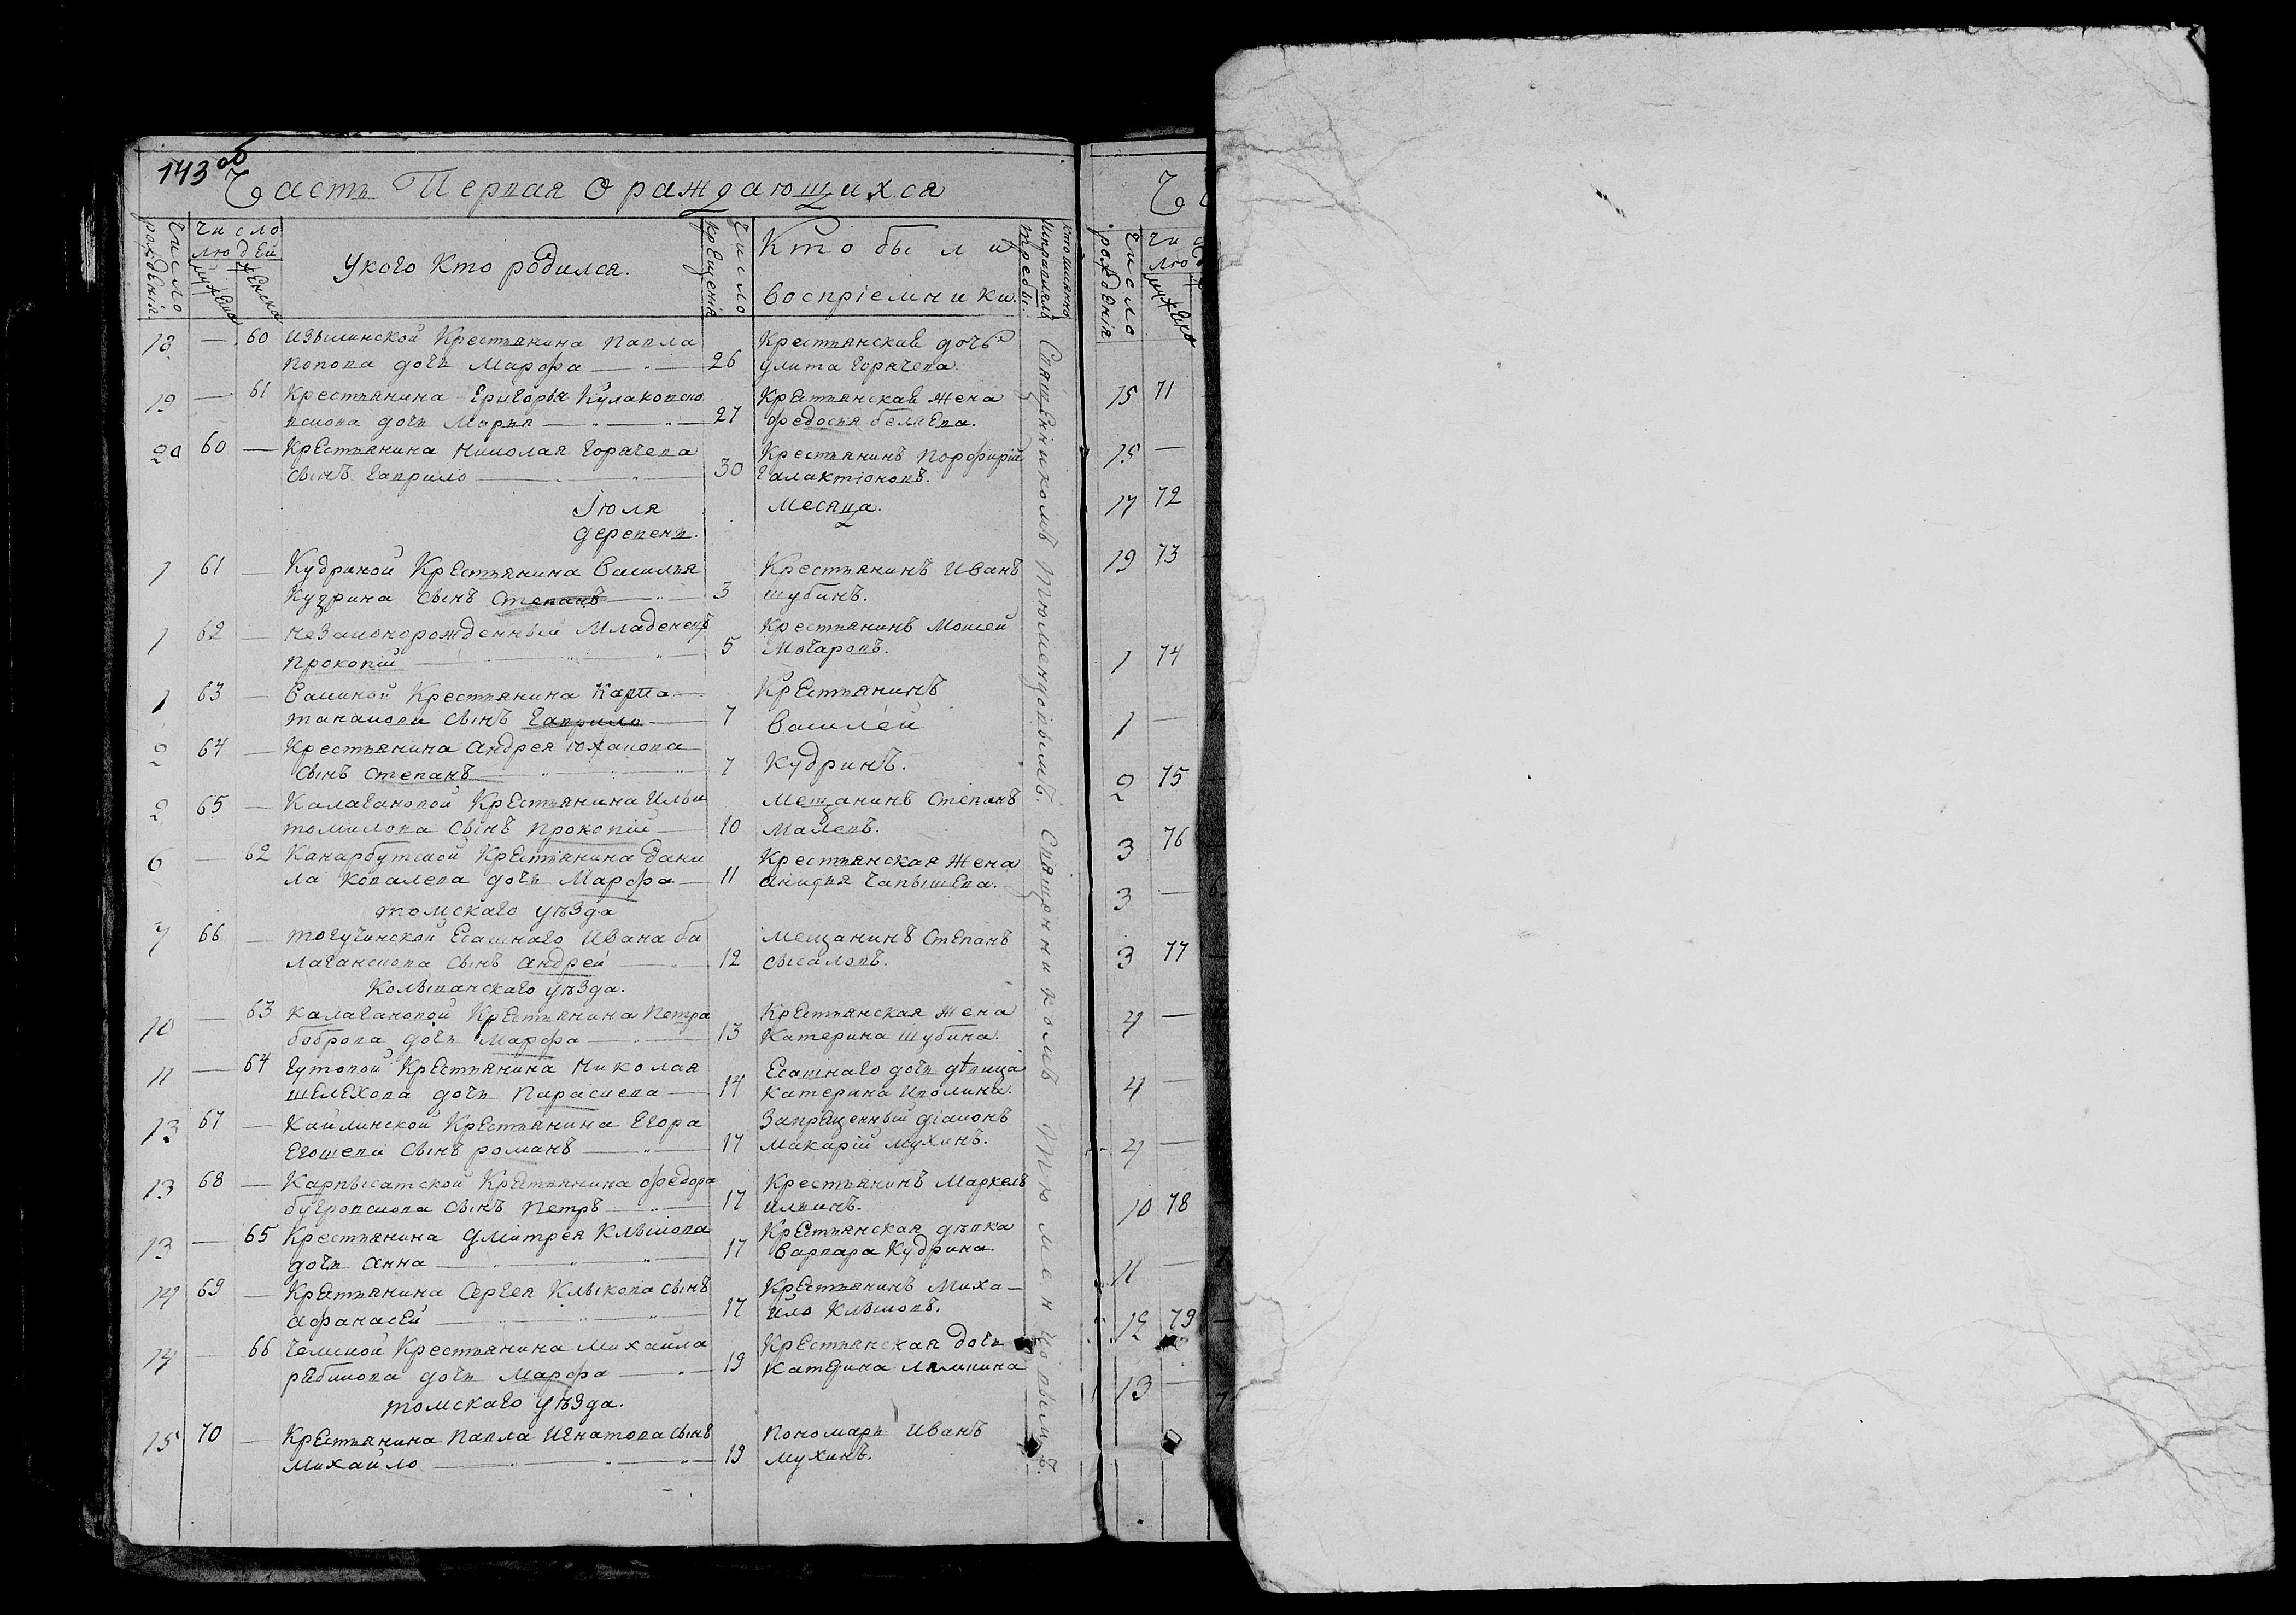 143 об
Часть Первая о раждающихся
Число рожденія.
Число людей
мужеска
женска
У кого кто родился.
Число крещенія
Кто были воспріемники.
Кто имянно исправлялъ требы.
18 — 60 Изылинской Крестьянина Павла
Попова дочь Марфа — 26
Крестьянский дочь
Улита Горячева.
19 — 61 Крестьянина Григорья Кулаковско
дочь Марья — 27
Крестьянская жена
Федосья Беляева.
20 60 — Крестьянина Николая Горячева
сынъ Гаврило — 30
Крестьянинъ Порфирій
Галактіоновъ.
Іюля Месяца.
деревень.
1 61 — Кудриной Крестьянина Василья
Кудрина сынъ Степанъ — 3
Крестьянинъ Иванъ
Шубинъ.
1 62 — Незаконорожденный Младенецъ
Прокопій — 5
Крестьянинъ Мокей
Мочаровъ.
1 63 — Крестьянина Карпа
сынъ Гаврило — 7
Крестьянинъ
Василей
2 64 — Крестьянина Андрея Юханова
сынъ Степанъ — 7
Кудринъ.
2 65 — Калагановой Крестьянина Ильи
Томилова сынъ Прокопій — 10
Мещанинъ Степанъ
Малевъ.
6 — 62 Канарбутской Крестьянина Дани
ла Ковалева дочь Марфа — 11
Крестьянская Жена
Анисья Чапышева.
Томскаго уѣзда
7 66 — Тогучинской Есашнаго Ивана Ба
лаганскова сынъ Андрей — 12
Мещанинъ Степанъ
Колыванскаго уѣзда.
10 — 63 Калагановой Крестьянина Петра
Боброва дочь Марфа — 13
Крестьянская Жена
Катерина Шубина.
11 — 64 Гутовой Крестьянина Николая
Шелехова дочь Параскева — 14
Есашнаго дочь дѣвица
Катерина Иволина.
13 67 — Кайлинской Крестьянина Егора
сынъ Романъ — 17
Запрещенный діаконъ
Макарій Мухинъ.
13 68 — Карпысатской Крестьянина Федора
Бугровскова сынъ Петръ — 17
Крестьянинъ Маркелъ
Ильинъ.
13 — 65 Крестьянина Дмитрея Клыкова
дочь Анна — 17
Крестьянская дѣвка
Варвара Кудрина.
14 69 — Крестьянина Сергея Клыкова сынъ
Афанасей — 17
Крестьянинъ Миха-
йло Клыковъ.
14 — 66 Чемской Крестьянина Михайла
Рябикова дочь Марфа — 19
Крестьянская дочь
Катерина Лямкина
Томскаго уѣзда.
15 70 — Крестьянина Павла Игнатова сынъ
Михайло — 19
Пономарь Иванъ
Мухинъ.
Священникомъ Тюменцовымъ. Священникомъ Тюменцовымъ.
Ча
Число рожденія
Чис
люд
мужеска
15 71
15 —
17 72
19 73
1 74
1 —
2 75
3 76
3 —
3 77
4 —
4 —
4 —
10 78
11 —
12 79
13 —